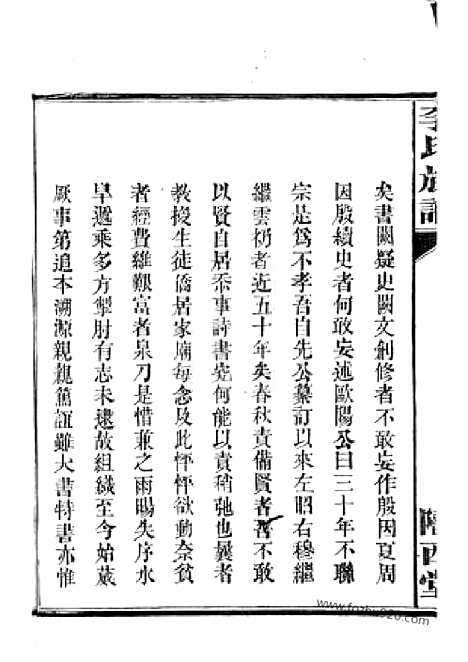 李氏族譜
隴西堂
矣書闕疑史闕文創修者不敢妄作殷因夏周
因殷續史者何敢妄述歐陽公曰三十年不聯
宗是爲不孝吾自先公纂訂以來左昭右穆繼
繼雲礽者近五十年矣春秋責備賢者吾不敢
以賢自居忝事詩書究何能以責稍弛也曩者
教授生徒僑居家廟每念及此怦怦欲動奈貧
者經費維艱富者泉刀是惜兼之雨暘失序水
旱遞乘多方掣肘有志未逮故組織至今始蕆
厥事第追本溯源親親篤誼雖大書特書亦惟
www.fozhu920.com